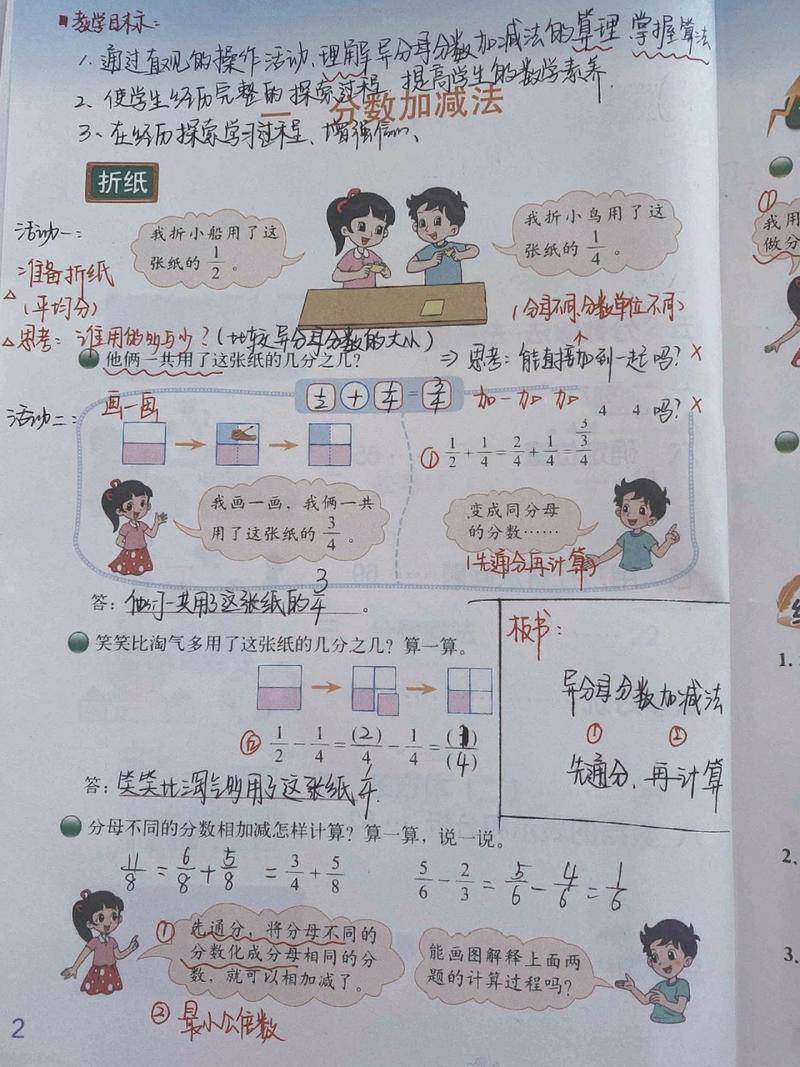 教学目标:
1. 通过直观的操作活动、理解异分母分数加减法的算理、掌握算法
2、使学生经历完整的探索过程、提高学生的数学素养.
一 分数加减法
3、在经历探索学习过程、增强信心、
折纸
活动一:
我折小船用了这
张纸的 1/2 。
我折小鸟用了这
张纸的 1/4 。
准备折纸
△ (平均分)
(分母不同,分数单位不同)
△ 思考: 谁用的多与少?(比较异分母分数的大小)
他俩一共用了这张纸的几分之几?
⇒ 思考: 能直接加到一起吗? ×
活动二:
画一画
1/2 + 1/4 = 3/4
加一加 加
4 4 吗? ×
① 1/2 + 1/4 = 2/4 + 1/4 = 3/3/4
我画一画,我俩一共
用了这张纸的 3/4 。
变成同分母
的分数……
(先通分再计算)
答: 他们一共用了这张纸的 3/4 。
笑笑比淘气多用了这张纸的几分之几?算一算。
板书:
异分母分数加减法
① ②
先通分、再计算
1/2 - 1/4 = (2)/4 - 1/4 = (1)/(4)
答: 笑笑比淘气多用了这张纸 1/4.
分母不同的分数相加减怎样计算?算一算,说一说。
11/8 = 6/8 + 5/8 = 3/4 + 5/8
5/6 - 2/3 = 5/6 - 4/6 = 1/6
① 先通分,将分母不同的
分数化成分母相同的分
数,就可以相加减了。
能画图解释上面两
题的计算过程吗?
② 最小公倍数
2
①
我用
做分
1.
2.
3.